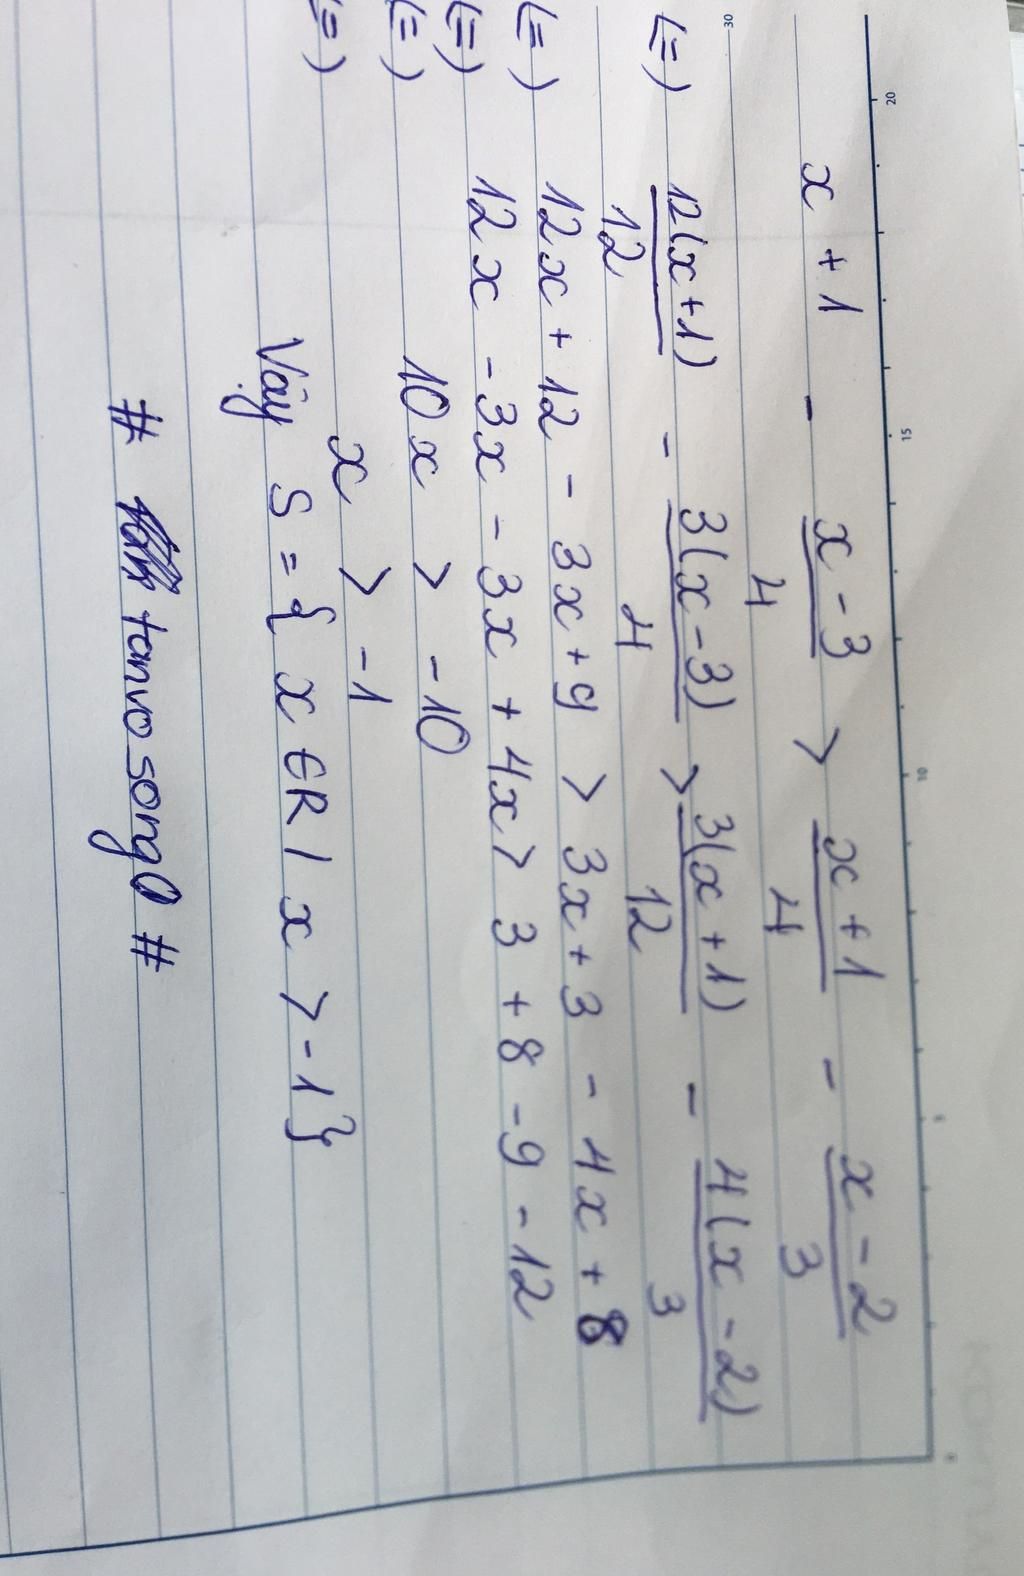 x + 1 - (x - 3)/4 > (x + 1)/4 - (x - 2)/3
(=) 12(x+1)/12 - 3(x-3)/4 > 3(x+1)/12 - 4(x-2)/3
(=) 12x + 12 - 3x + 9 > 3x + 3 - 4x + 8
(=) 12x - 3x - 3x + 4x > 3 + 8 - 9 - 12
(=) 10x > -10
(=) x > -1
Vây S = { x ∈ R / x > -1 }
# tanvosong0 #
30
20
15
10
5
0